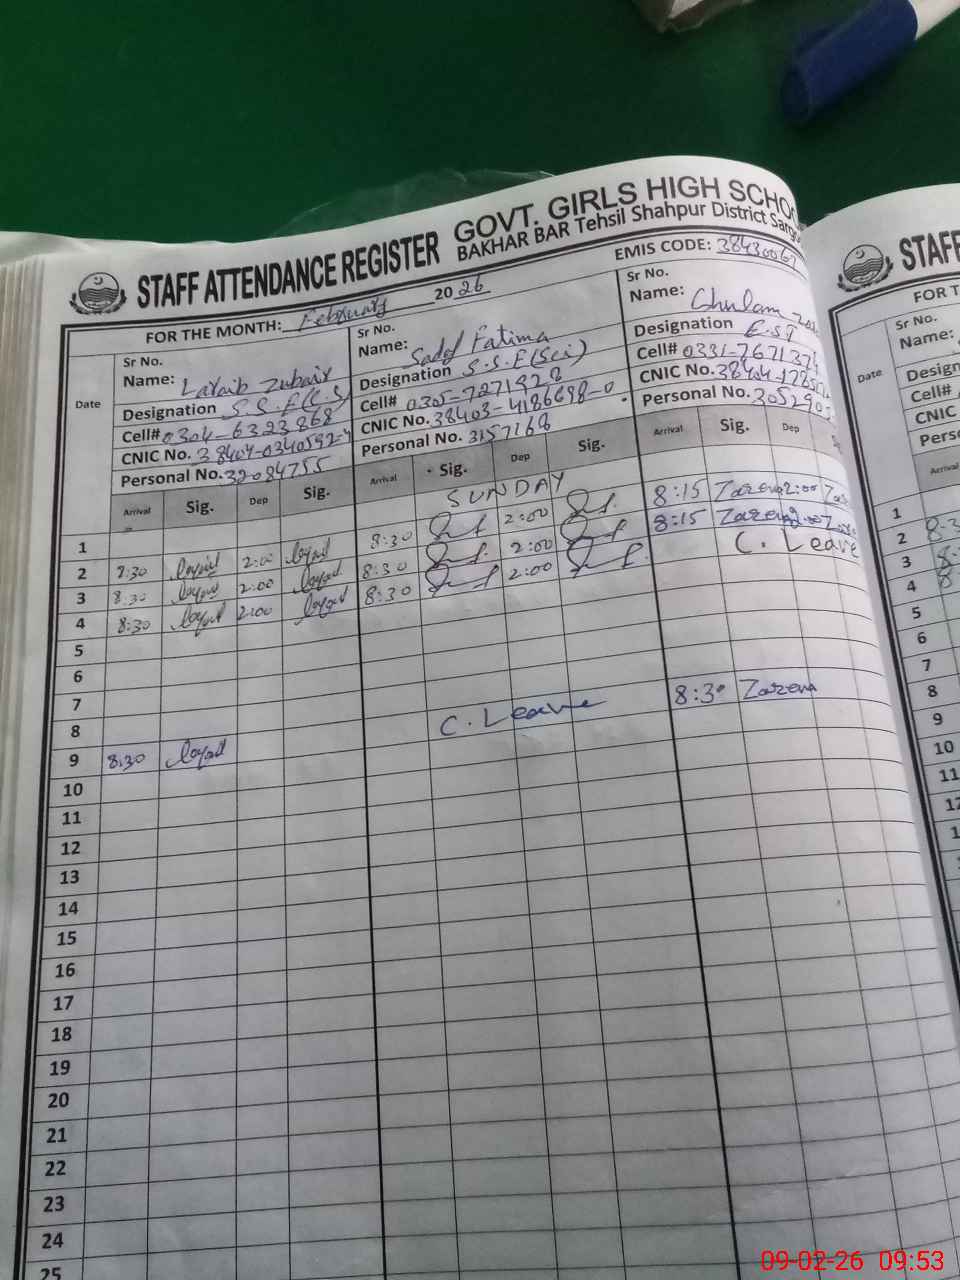 STAFF ATTENDANCE REGISTER
GOVT. GIRLS HIGH SCHOO
BAKHAR BAR Tehsil Shahpur District Sargo
EMIS CODE: 3843006
FOR THE MONTH: February 2026
Date
Sr No.
Name: Laraib Zubair
Designation
Cell# 0304-6323868
CNIC No. 38404-0340592-
Personal No. 32084755
Sr No.
Name: Sadaf Fatima
Designation S.S.E(Sci)
Cell# 0305-7271928
CNIC No. 38403-4186698-0
Personal No. 3157168
Sr No.
Name: Ghulam
Designation E.S.T
Cell# 0331-767137
CNIC No. 38404-
Personal No. 305290
Arrival Sig. Dep Sig. Arrival Sig. Dep Sig. Arrival Sig. Dep
1 SUNDAY
2 8:30 2:00 8:30 2:00 8:15 Zareena 2:00
3 8:30 2:00 8:30 2:00 8:15 Zareena 2:00
4 8:30 2:00 8:30 2:00 C. Leave
5
6
7
8
9 8:30 C. Leave 8:30 Zareena
10
11
12
13
14
15
16
17
18
19
20
21
22
23
24
25
STAFF
FOR T
Date
Sr No.
Name:
Design
Cell#
CNIC
Perso
Arrival
1
2
3
4
5
6
7
8
9
10
11
12
09-02-26 09:53